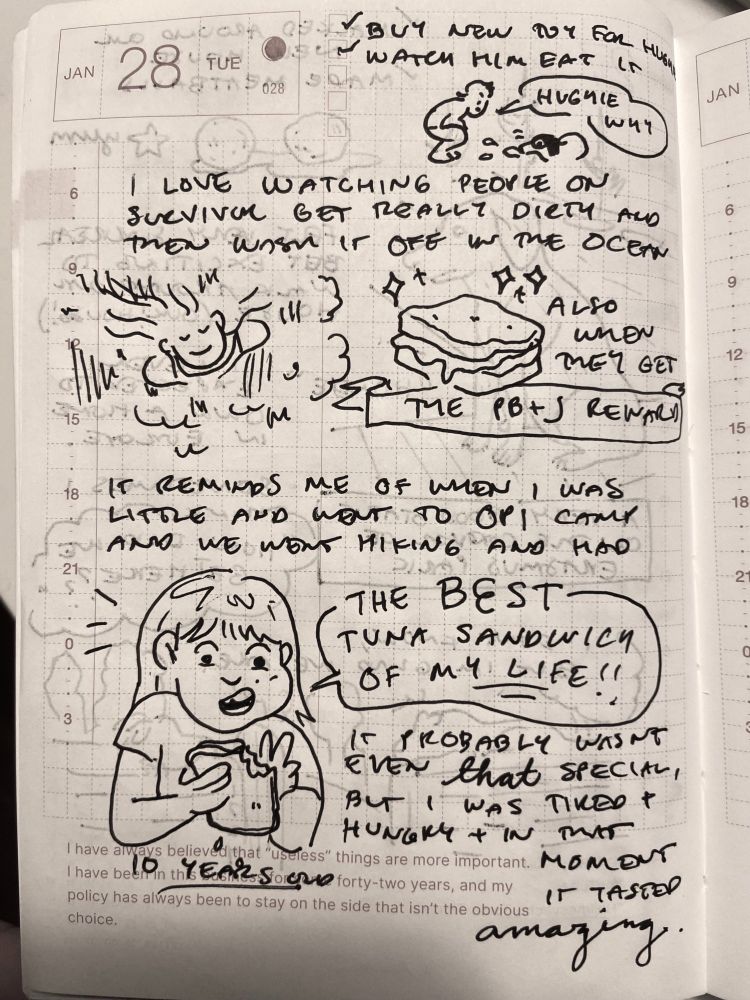 JAN 28 TUE
028
✓ BUY NEW TOY FOR HUGHIE
✓ WATCH HIM EAT IT
HUGHIE
WHY
I LOVE WATCHING PEOPLE ON
SURVIVOR GET REALLY DIRTY AND
THEN WASH IT OFF IN THE OCEAN
ALSO
WHEN
THEY GET
THE PB+J REWARD
IT REMINDS ME OF WHEN I WAS
LITTLE AND WENT TO OPI CAMP
AND WE WENT HIKING AND HAD
THE BEST
TUNA SANDWICH
OF MY LIFE!!
IT PROBABLY WASNT
EVEN that SPECIAL,
BUT I WAS TIRED +
HUNGRY + IN THAT
MOMENT
IT TASTED
amazing.
10 YEARS OLD
6
9
12
15
18
21
0
3
I have always believed that "useless" things are more important.
I have been in this business for forty-two years, and my
policy has always been to stay on the side that isn't the obvious
choice.
JAN
6
9
12
15
18
21
0
3